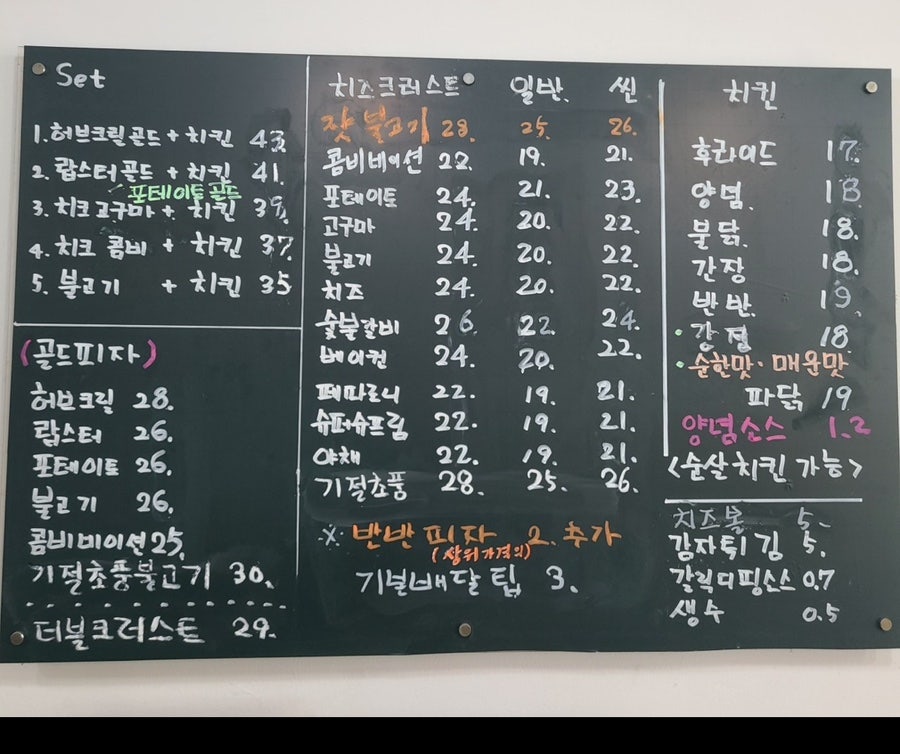 Set
1. 허브크릴골드 + 치킨 43.
2. 랍스터골드 + 치킨 41.
포테이토골드
3. 치크고구마 + 치킨 39.
4. 치크 콤비 + 치킨 37.
5. 불고기 + 치킨 35
(골드피자)
허브크릴 28.
랍스터 26.
포테이트 26.
불고기 26.
콤비비이션 25.
기절초풍불고기 30.
터블크러스트 29.
치즈크러스트 일반. 씬
잣불고기 28. 25. 26.
콤비네이션 22. 19. 21.
포테이트 24. 21. 23.
고구마 24. 20. 22.
불고기 24. 20. 22.
치즈 24. 20. 22.
숯불갈비 26. 22. 24.
베이컨 24. 20. 22.
페파로니 22. 19. 21.
슈퍼슈프림 22. 19. 21.
야채 22. 19. 21.
기절초풍 28. 25. 26.
※ 반반피자 2. 추가
(상위가격의)
기본배달팁 3.
치킨
후라이드 17.
양념. 18
불닭. 18.
간장 18.
반반. 19.
· 강정 18
· 순한맛 · 매운맛
파닭 19
양념소스 1.2
<순살치킨 가능>
치즈볼 5.
감자튀김 5.
갈릭디핑소스 0.7
생수 0.5